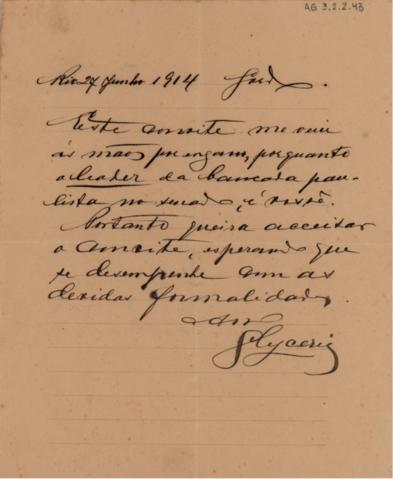 AG 3.2.2.43
Rio 27 Junho 1914
Este convite me veiu
ás mãos por engano, porquanto
o leader da bancada pau-
lista no senado, é você.
Portanto queira acceitar
o convite, esperando que
se desempenhe com as
devidas formalidades.
Glycerio